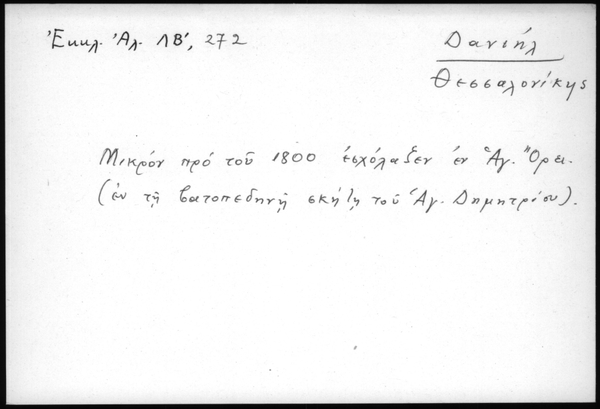 Ἐκκλ. Ἀλ. ΛΒ', 272
Δανιήλ
Θεσσαλονίκης
Μικρόν πρό τοῦ 1800 ἐσχόλαζεν ἐν Ἁγ. Ὄρει.
(ἐν τῇ βατοπεδηνῇ σκήτῃ τοῦ Ἁγ. Δημητρίου).